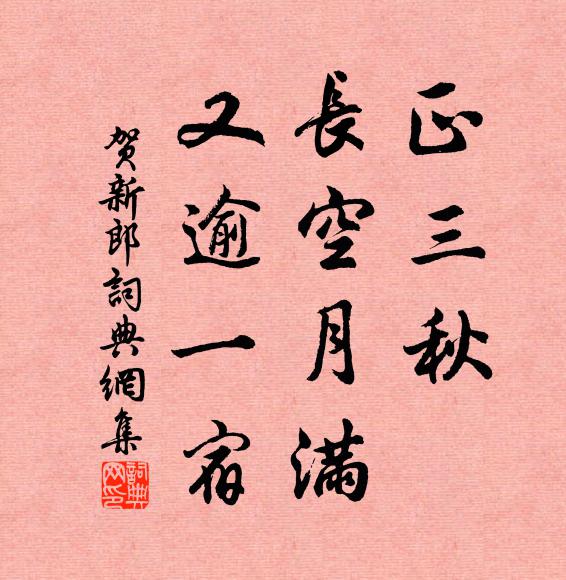 正三秋
長空月滿
又逾一宿
贺新郎詞典網集
詞典
网印